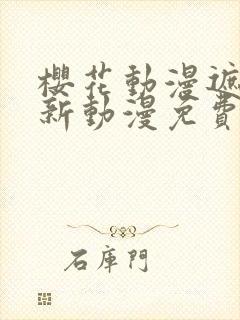 櫻花動漫遮
新動漫免費
石庫門